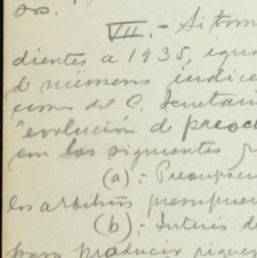 os.
VII.- Si tom
dientes a 1935, igua
de números índice
ciones del C. Secretari
"evolución de preocu
em las siguientes
(a):- Preocupac
los arbitrios presupues
(b):- Interés de
para producir rique